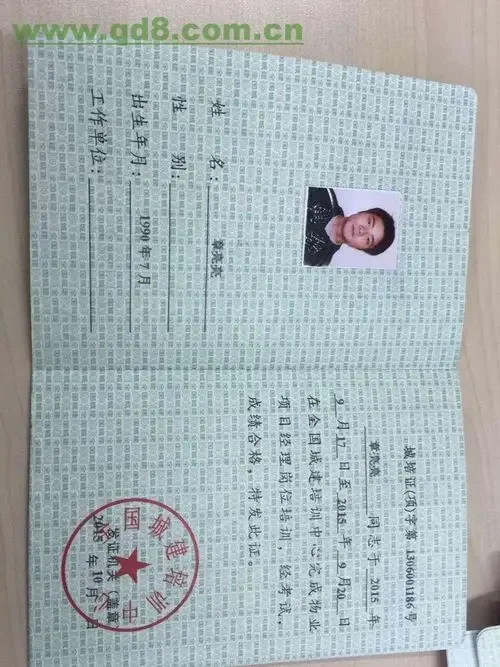 www.qd8.com.cn
姓 名：章亮亮
性 别：
出生年月：1990年7月
工作单位：
城培证(项)字第 1306001186 号
章亮亮 同志于 2015 年
9 月 17 日至 2015 年 9 月 20 日
在全国城建培训中心完成物业
项目经理岗位培训，经考试，
成绩合格，特发此证。
国城建培训中
发证机关（盖章
2015 年 10 月 日